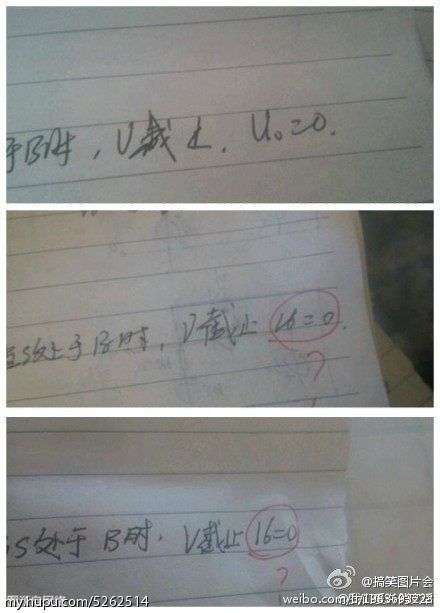 于B时,V截止.U₀=0.
当S处于B时,V截止 16=0.
?
当S处于B时.V截止 16=0
?
@搞笑图片会
weibo.com/
my.hupu.com/5262514